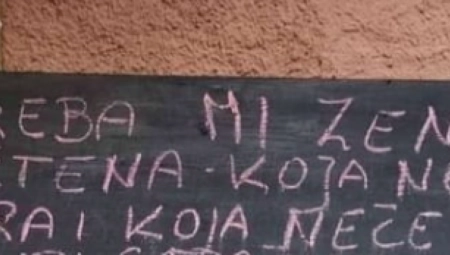 REBA MI ZEN
TENA-KOJA N
RAI KOJA NEČE